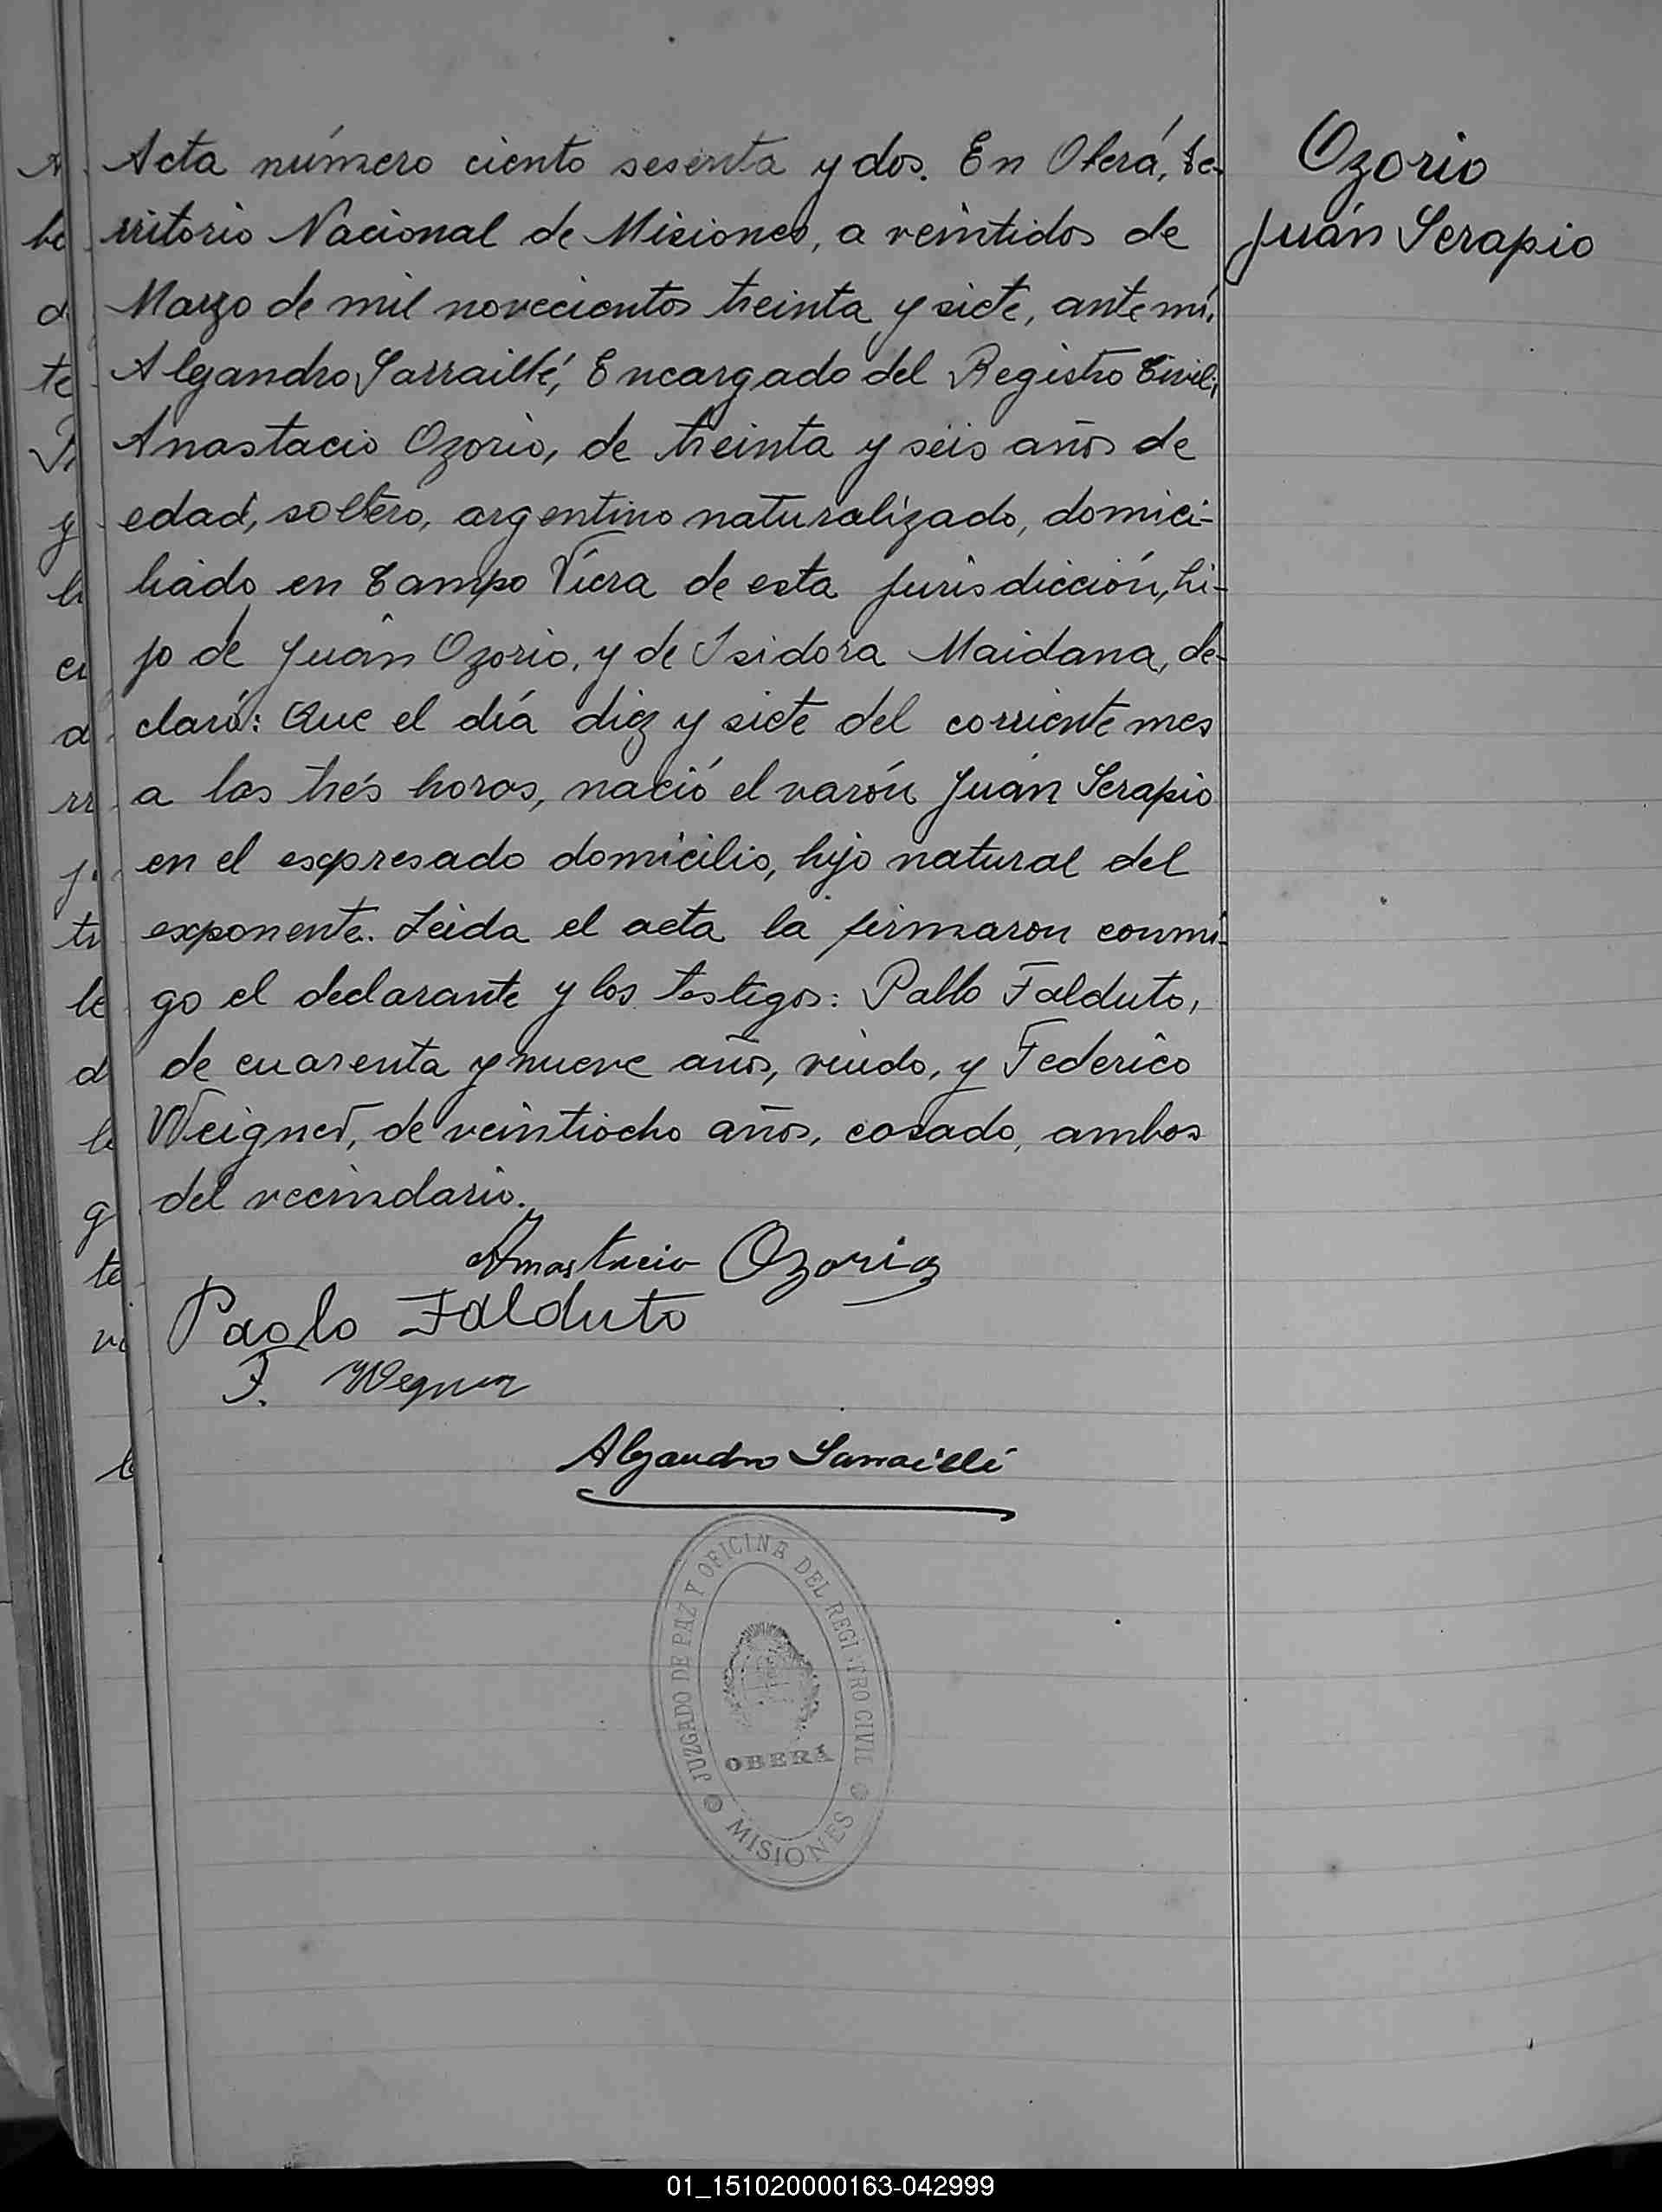 Acta número ciento sesenta y dos. En Oberá, te-
rritorio Nacional de Misiones, a veintidos de
Marzo de mil novecientos treinta y siete, ante mí,
Alejandro Sarraillé, Encargado del Registro Civil;
Anastacio Ozorio, de treinta y seis años de
edad, soltero, argentino naturalizado, domici-
liado en Campo Viera de esta jurisdicción, hi-
jo de Juan Ozorio, y de Isidora Maidana, de-
claró: Que el día diez y siete del corriente mes
a las trés horas, nació el varón Juan Serapio
en el expresado domicilio, hijo natural del
exponente. Leida el acta la firmaron conmi-
go el declarante y los testigos: Pablo Falduto,
de cuarenta y nueve años, viudo, y Federico
Weigner, de veintiocho años, casado, ambos
del vecindario.
Anastacio Ozorio
Paolo Falduto
F. Wegner
Alejandro Sarraillé
Ozorio
Juan Serapio
JUZGADO DE PAZ Y OFICINA DEL REGISTRO CIVIL
OBERÁ
MISIONES
01_151020000163-042999